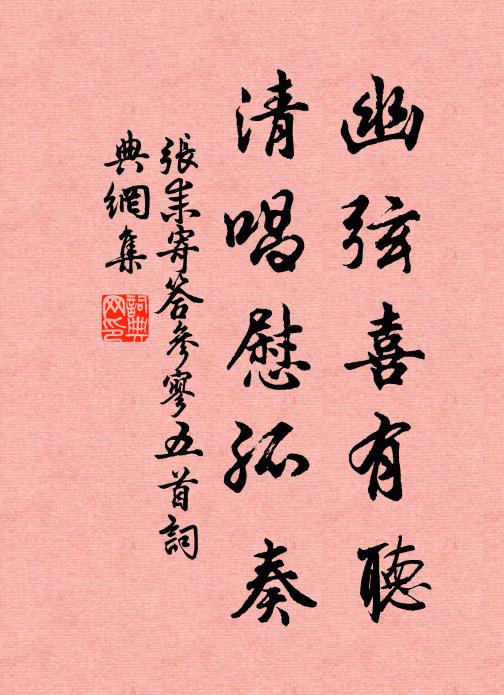 幽弦喜有聽
清唱慰孤奏
張耒寄答參寥五首詞
典網集
詞典
网印